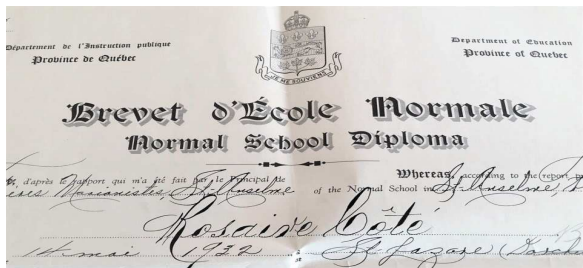 Département de l'Instruction publique
Province de Québec
Department of Education
Province of Quebec
JE ME SOUVIENS
Brevet d'École Normale
Normal School Diploma
d'après le rapport qui m'a été fait par le Principal de
Whereas, according to the report
Marianistes, St. Anselme
of the Normal School in St. Anselme,
Rosaire Côté
14 mai 1932 St. Lazare